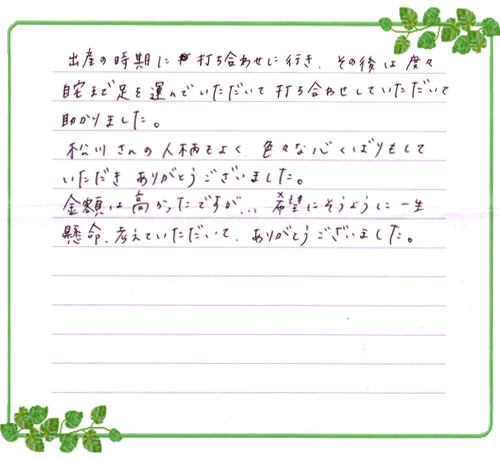 出産の時期に打ち合わせに行き、その後は度々
自宅まで足を運んでいただいて打ち合わせしていただいて
助かりました。
松川さんの人柄もよく、色々な心くばりもして
いただきありがとうございました。
金額は高かったですが、、、希望にそうように一生
懸命、考えていただいて、ありがとうございました。